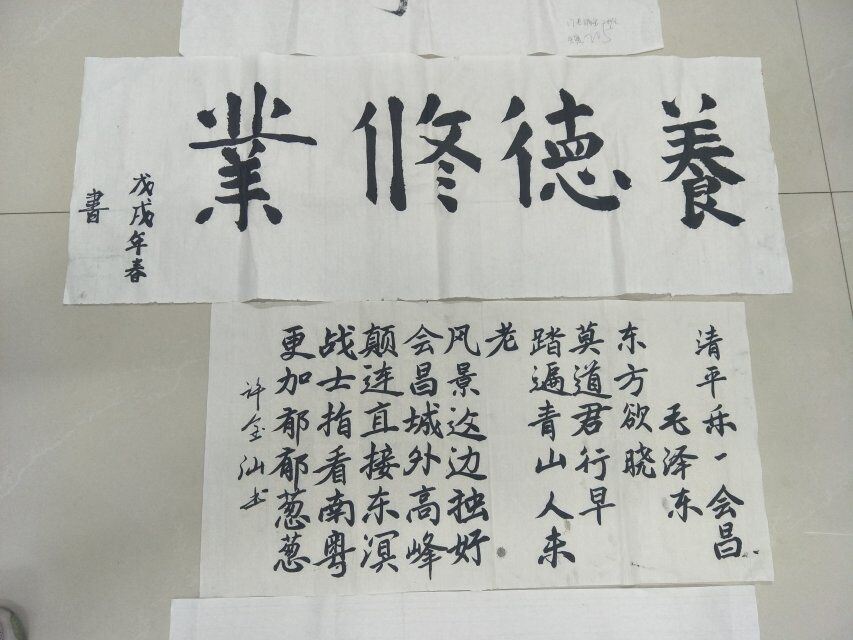 養德修業
戊戌年春
書
清平乐一会昌
毛泽东
东方欲晓
莫道君行早
踏遍青山人未
老
风景这边独好
会昌城外高峰
颠连直接东溟
战士指看南粤
更加郁郁葱葱
许金汕书